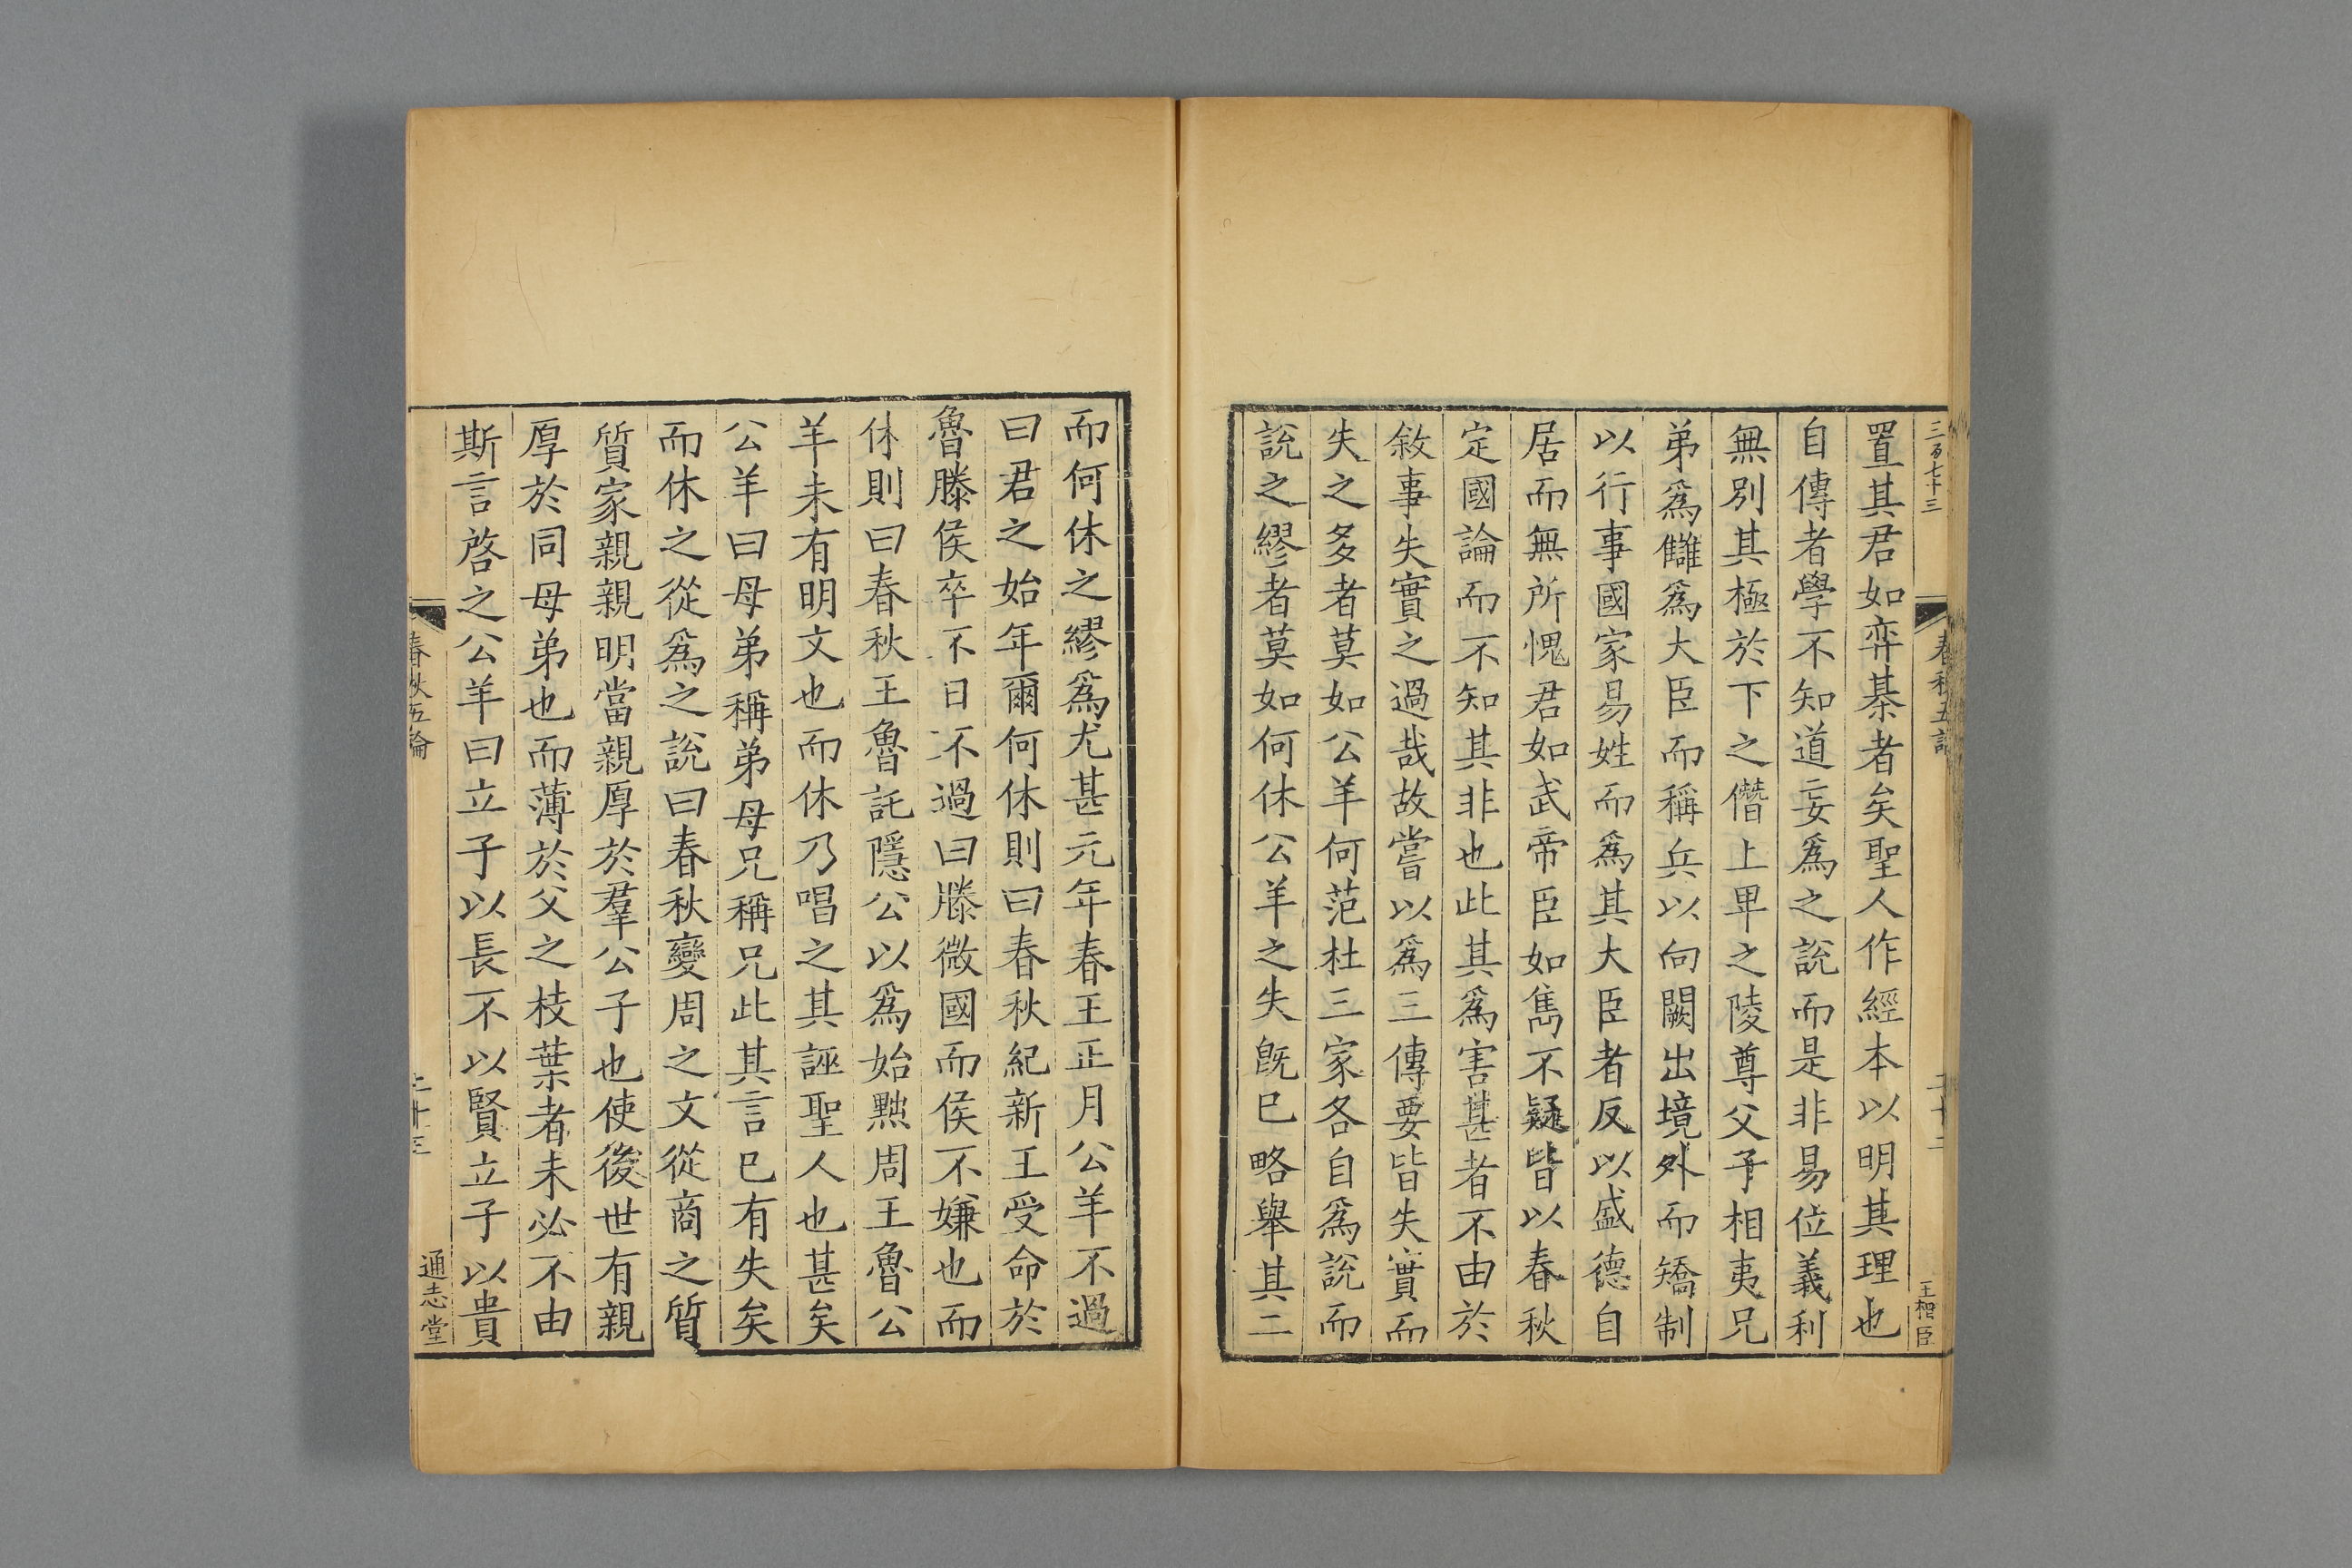 三百七十三
春秋五論
王相臣
置其君如弈棊者矣聖人作經本以明其理也
自傳者學不知道妄爲之說而是非易位義利
無別其極於下之僭上卑之陵尊父子相夷兄
弟爲讎爲大臣而稱兵以向闕出境外而矯制
以行事國家易姓而爲其大臣者反以盛德自
居而無所愧君如武帝臣如雋不疑皆以春秋
定國論而不知其非也此其爲害甚者不由於
敘事失實之過哉故嘗以爲三傳要皆失實而
失之多者莫如公羊何范杜三家各自爲說而
說之繆者莫如何休公羊之失旣已略舉其二
而何休之繆爲尤甚元年春王正月公羊不過
曰君之始年爾何休則曰春秋紀新王受命於
魯滕侯卒不日不過曰滕微國而侯不嫌也而
休則曰春秋王魯託隱公以爲始黜周王魯公
羊未有明文也而休乃唱之其誣聖人也甚矣
公羊曰母弟稱弟母兄稱兄此其言已有失矣
而休之從爲之說曰春秋變周之文從商之質
質家親親明當親厚於羣公子也使後世有親
厚於同母弟也而薄於父之枝葉者未必不由
斯言啓之公羊曰立子以長不以賢立子以貴
春秋五論
通志堂